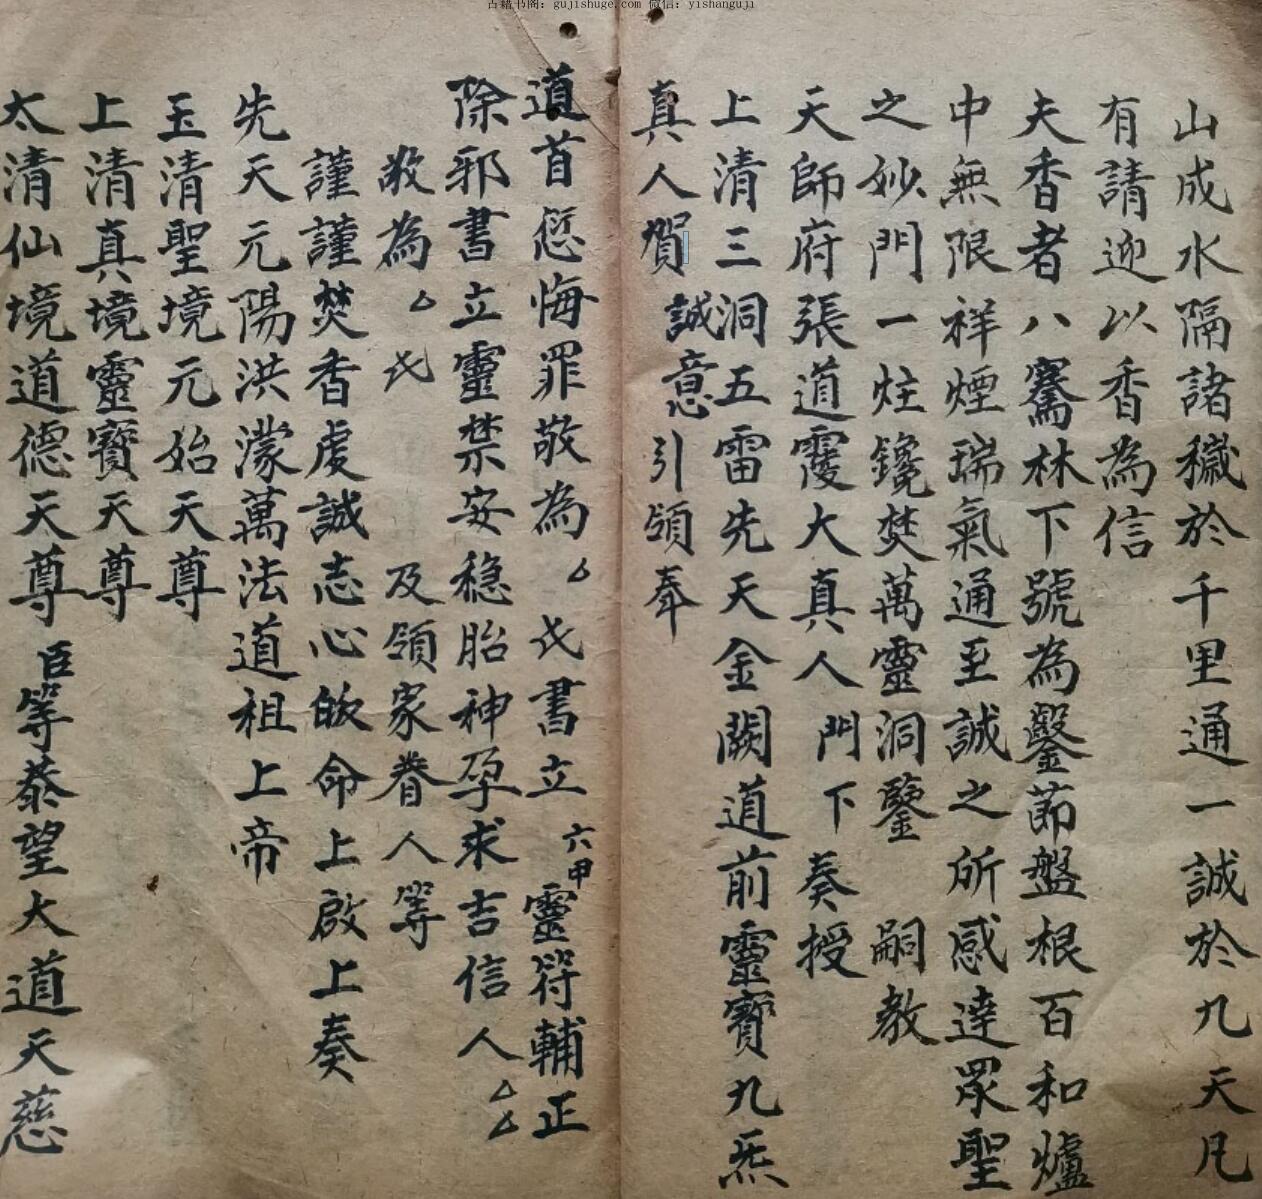 古籍书阁：gujishuge.com 微信：yishanguji
山成水隔諸穢於千里通一誠於九天凡
有請迎以香為信
夫香者八騫林下號為鑿節盤根百和爐
中無限祥煙瑞氣通至誠之所感達眾聖
之妙門一炷纔焚萬靈洞鑒 嗣教
天師府張道霞大真人門下 奏授
上清三洞五雷先天金闕道前靈寶九炁
真人賀 誠意引領奉
道首愆悔罪敬為厶厶氏書立六甲靈符輔正
除邪書立靈禁安穩胎神孕求吉信人厶厶
敬為厶氏 及領家眷人等
謹謹焚香虔誠志心皈命上啟上奏
先天元陽洪濛萬法道祖上帝
玉清聖境元始天尊
上清真境靈寶天尊
太清仙境道德天尊 臣等恭望大道天慈